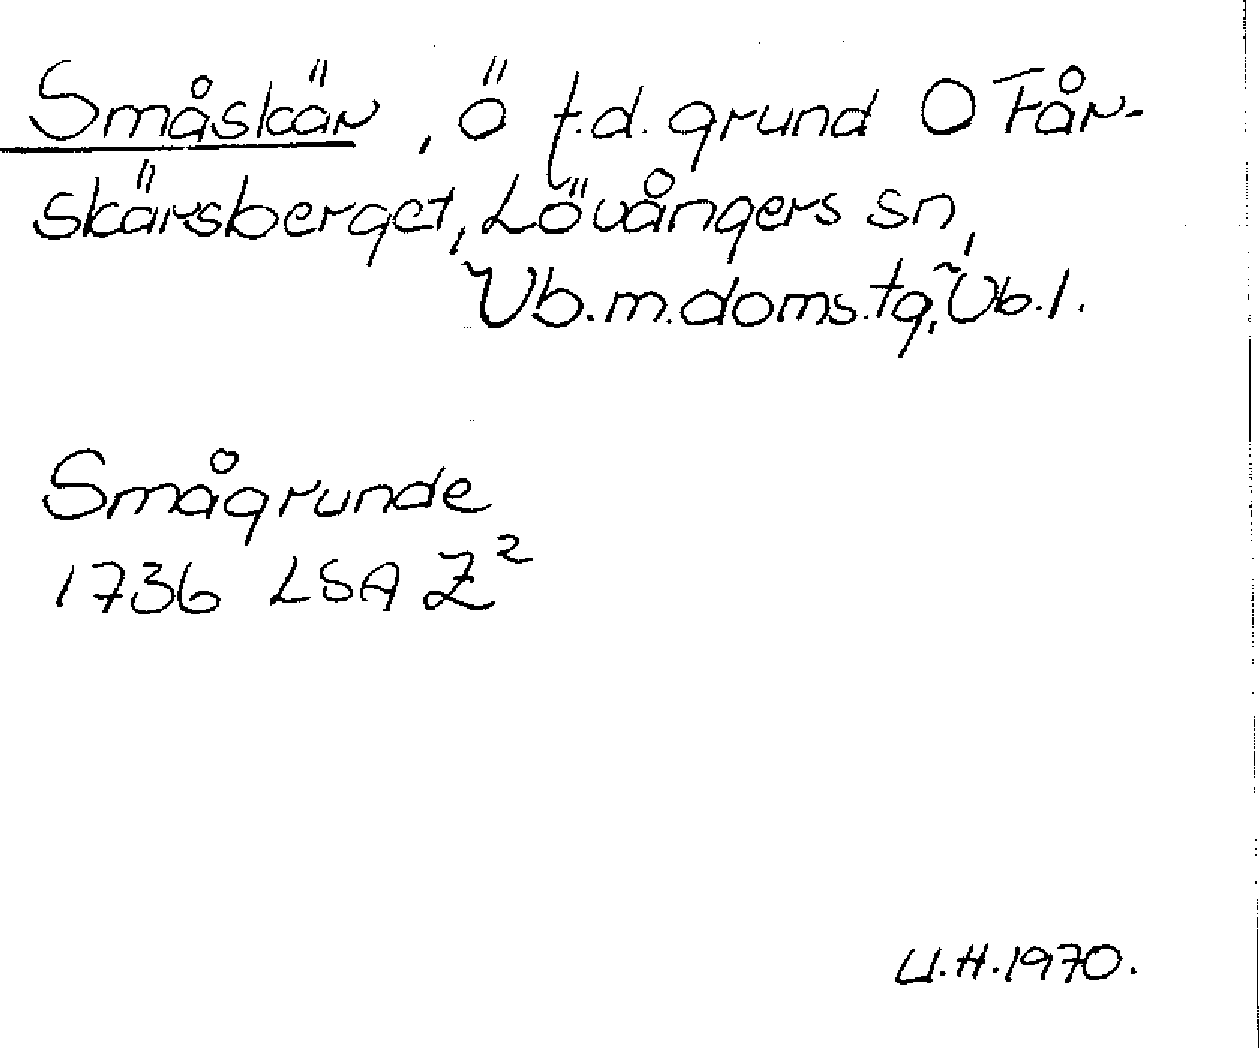 Småskär, ö f.d. grund O Får-
skärsberget, Lövångers sn,
Vb.m.doms.tg, Vb.l.
Smågrunde
1736 LSA Z²
U.H.1970.